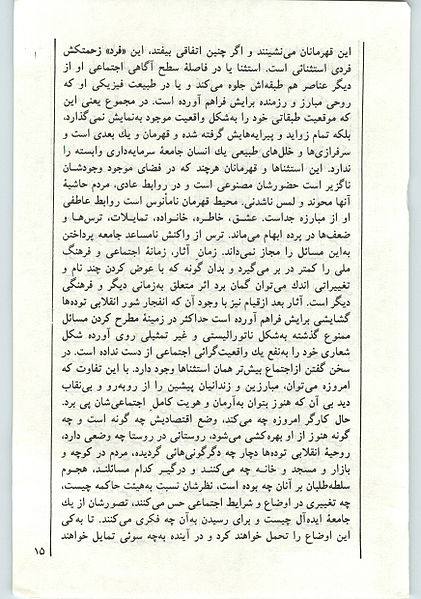 این قهرمانان می‌نشینند و اگر چنین اتفاقی بیفتد، این «فرد» زحمتکش
فردی استثنائی است. استثنا یا در فاصلهٔ سطح آگاهی اجتماعی او از
دیگر عناصر هم طبقه‌اش جلوه می‌کند و یا در طبیعت فیزیکی او که
روحی مبارز و رزمنده برایش فراهم آورده است. در مجموع یعنی این
که موقعیت طبقاتی خود را به‌شکل واقعیت موجود به‌نمایش نمی‌گذارد،
بلکه تمام زواید و پیرایه‌هایش گرفته شده و قهرمان و یك بعدی است و
سرفرازی‌ها و خلل‌های طبیعی یك انسان جامعهٔ سرمایه‌داری وابسته را
ندارد. این استثناها و قهرمانان هرچند که در فضای موجود وجودشان
ناگزیر است حضورشان مصنوعی است و در روابط عادی، مردم حاشیهٔ
آنها محوند و لمس ناشدنی. محیط قهرمان نامأنوس است روابط عاطفی
او از مبارزه جداست. عشق، خاطره، خانواده، تمایلات، ترس‌ها و
ضعف‌ها در پرده ابهام می‌ماند. ترس از واکنش نامساعد جامعه پرداختن
به‌این مسائل را مجاز نمی‌داند. زمان آثار، زمانهٔ اجتماعی و فرهنگ
ملی را کمتر در بر می‌گیرد و بدان گونه که با عوض کردن چند نام و
تغییراتی اندك می‌توان گمان برد اثر متعلق به‌زمانی دیگر و فرهنگی
دیگر است. آثار بعد ازقیام نیز با وجود آن که انفجار شور انقلابی توده‌ها
گشایشی برایش فراهم آورده است حداکثر در زمینهٔ مطرح کردن مسائل
ممنوع گذشته به‌شکل ناتورالیستی و غیر تمثیلی روی آورده شکل
شعاری خود را به‌نفع یك واقعیت‌گرائی اجتماعی از دست نداده است. در
سخن گفتن ازاجتماع بیش‌تر همان استثناها وجود دارد. با این تفاوت که
امروزه می‌توان، مبارزین و زندانیان پیشین را از روبه‌رو و بی‌نقاب
دید بی آن که هنوز بتوان به‌آرمان و هویت کامل اجتماعی‌شان پی برد.
حال کارگر امروزه چه می‌کند، وضع اقتصادیش چه گونه است و چه
گونه هنوز از او بهره‌کشی می‌شود، روستائی در روستا چه وضعی دارد،
روحیهٔ انقلابی توده‌ها دچار چه دگرگونی‌هائی گردیده، مردم در کوچه و
بازار و مسجد و خانه چه می‌کنند و درگیر کدام مسائلند، هجوم
سلطه‌طلبان بر آنان چه بوده است، نظرشان نسبت به‌هیئت حاکمه چیست،
چه تغییری در اوضاع و شرایط اجتماعی حس می‌کنند، تصورشان از یك
جامعهٔ ایده‌آل چیست و برای رسیدن به‌آن چه فکری می‌کنند. تا به‌کی
این اوضاع را تحمل خواهند کرد و در آینده به‌چه سوئی تمایل خواهند
۱۵